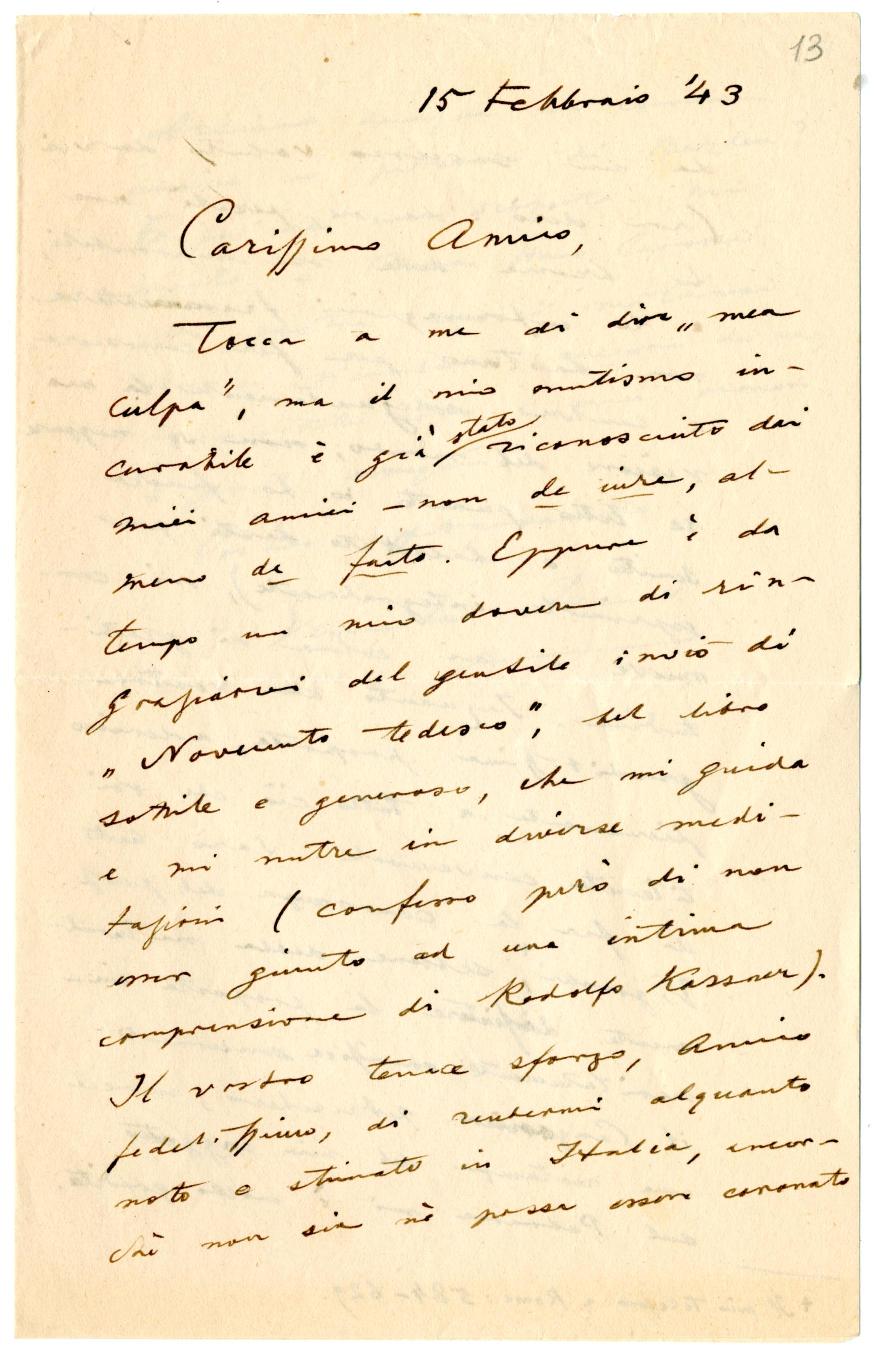 13
15 Febbraio '43
Carissimo Amico,
Tocca a me di dire „mea
culpa", ma il mio mutismo in-
curabile è già stato riconosciuto dai
miei amici – non de iure, al-
meno de facto. Eppure è da
tempo un mio dovere di rin-
graziarvi del gentile invio di
„Novecento tedesco", del libro
sottile e generoso, che mi guida
e mi nutre in diverse medi-
tazioni (confesso però di non
esser giunto ad una intima
comprensione di Rodolfo Kassner).
Il vostro tenace sforzo, Amico
fedelissimo, di rendermi alquanto
noto e stimato in Italia, ancor-
chè non sia nè possa essere coronato